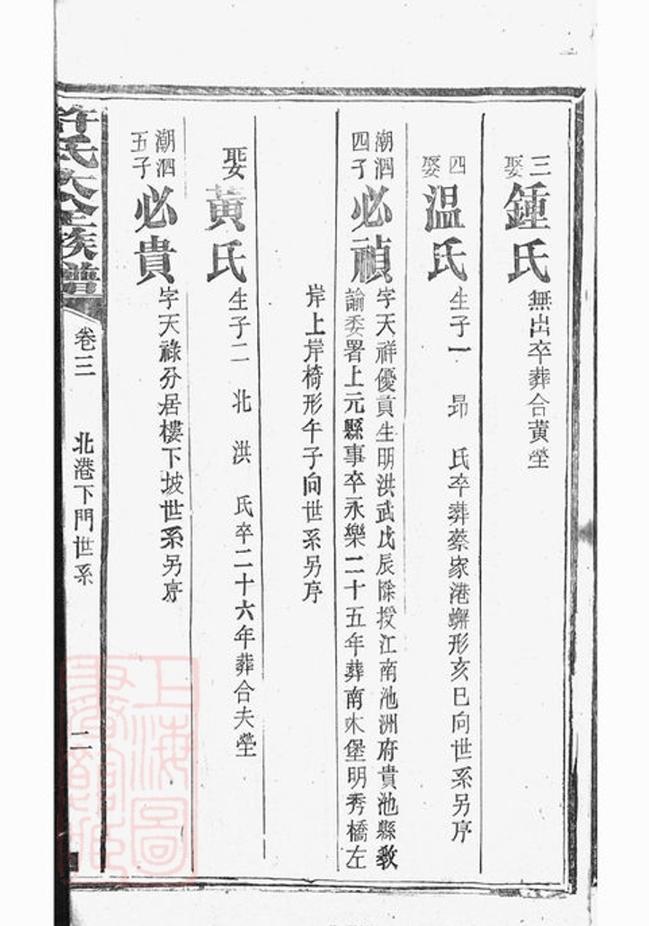 三娶
鍾氏
無出卒葬合黃塋
四娶
温氏
生子一 昻 氏卒葬蔡家港蠏形亥巳向世系另序
潮泗四子
必禎
字天祥優貢生明洪武戊辰除授江南池洲府貴池縣教
諭委署上元縣事卒永樂二十五年葬南木堡明秀橋左
岸上岸椅形午子向世系另序
娶
黃氏
生子二 北 洪 氏卒二十六年葬合夫塋
潮泗五子
必貴
字天祿分居樓下坡世系另序
許氏大全族譜
卷三
北港下門世系
二
上海圖